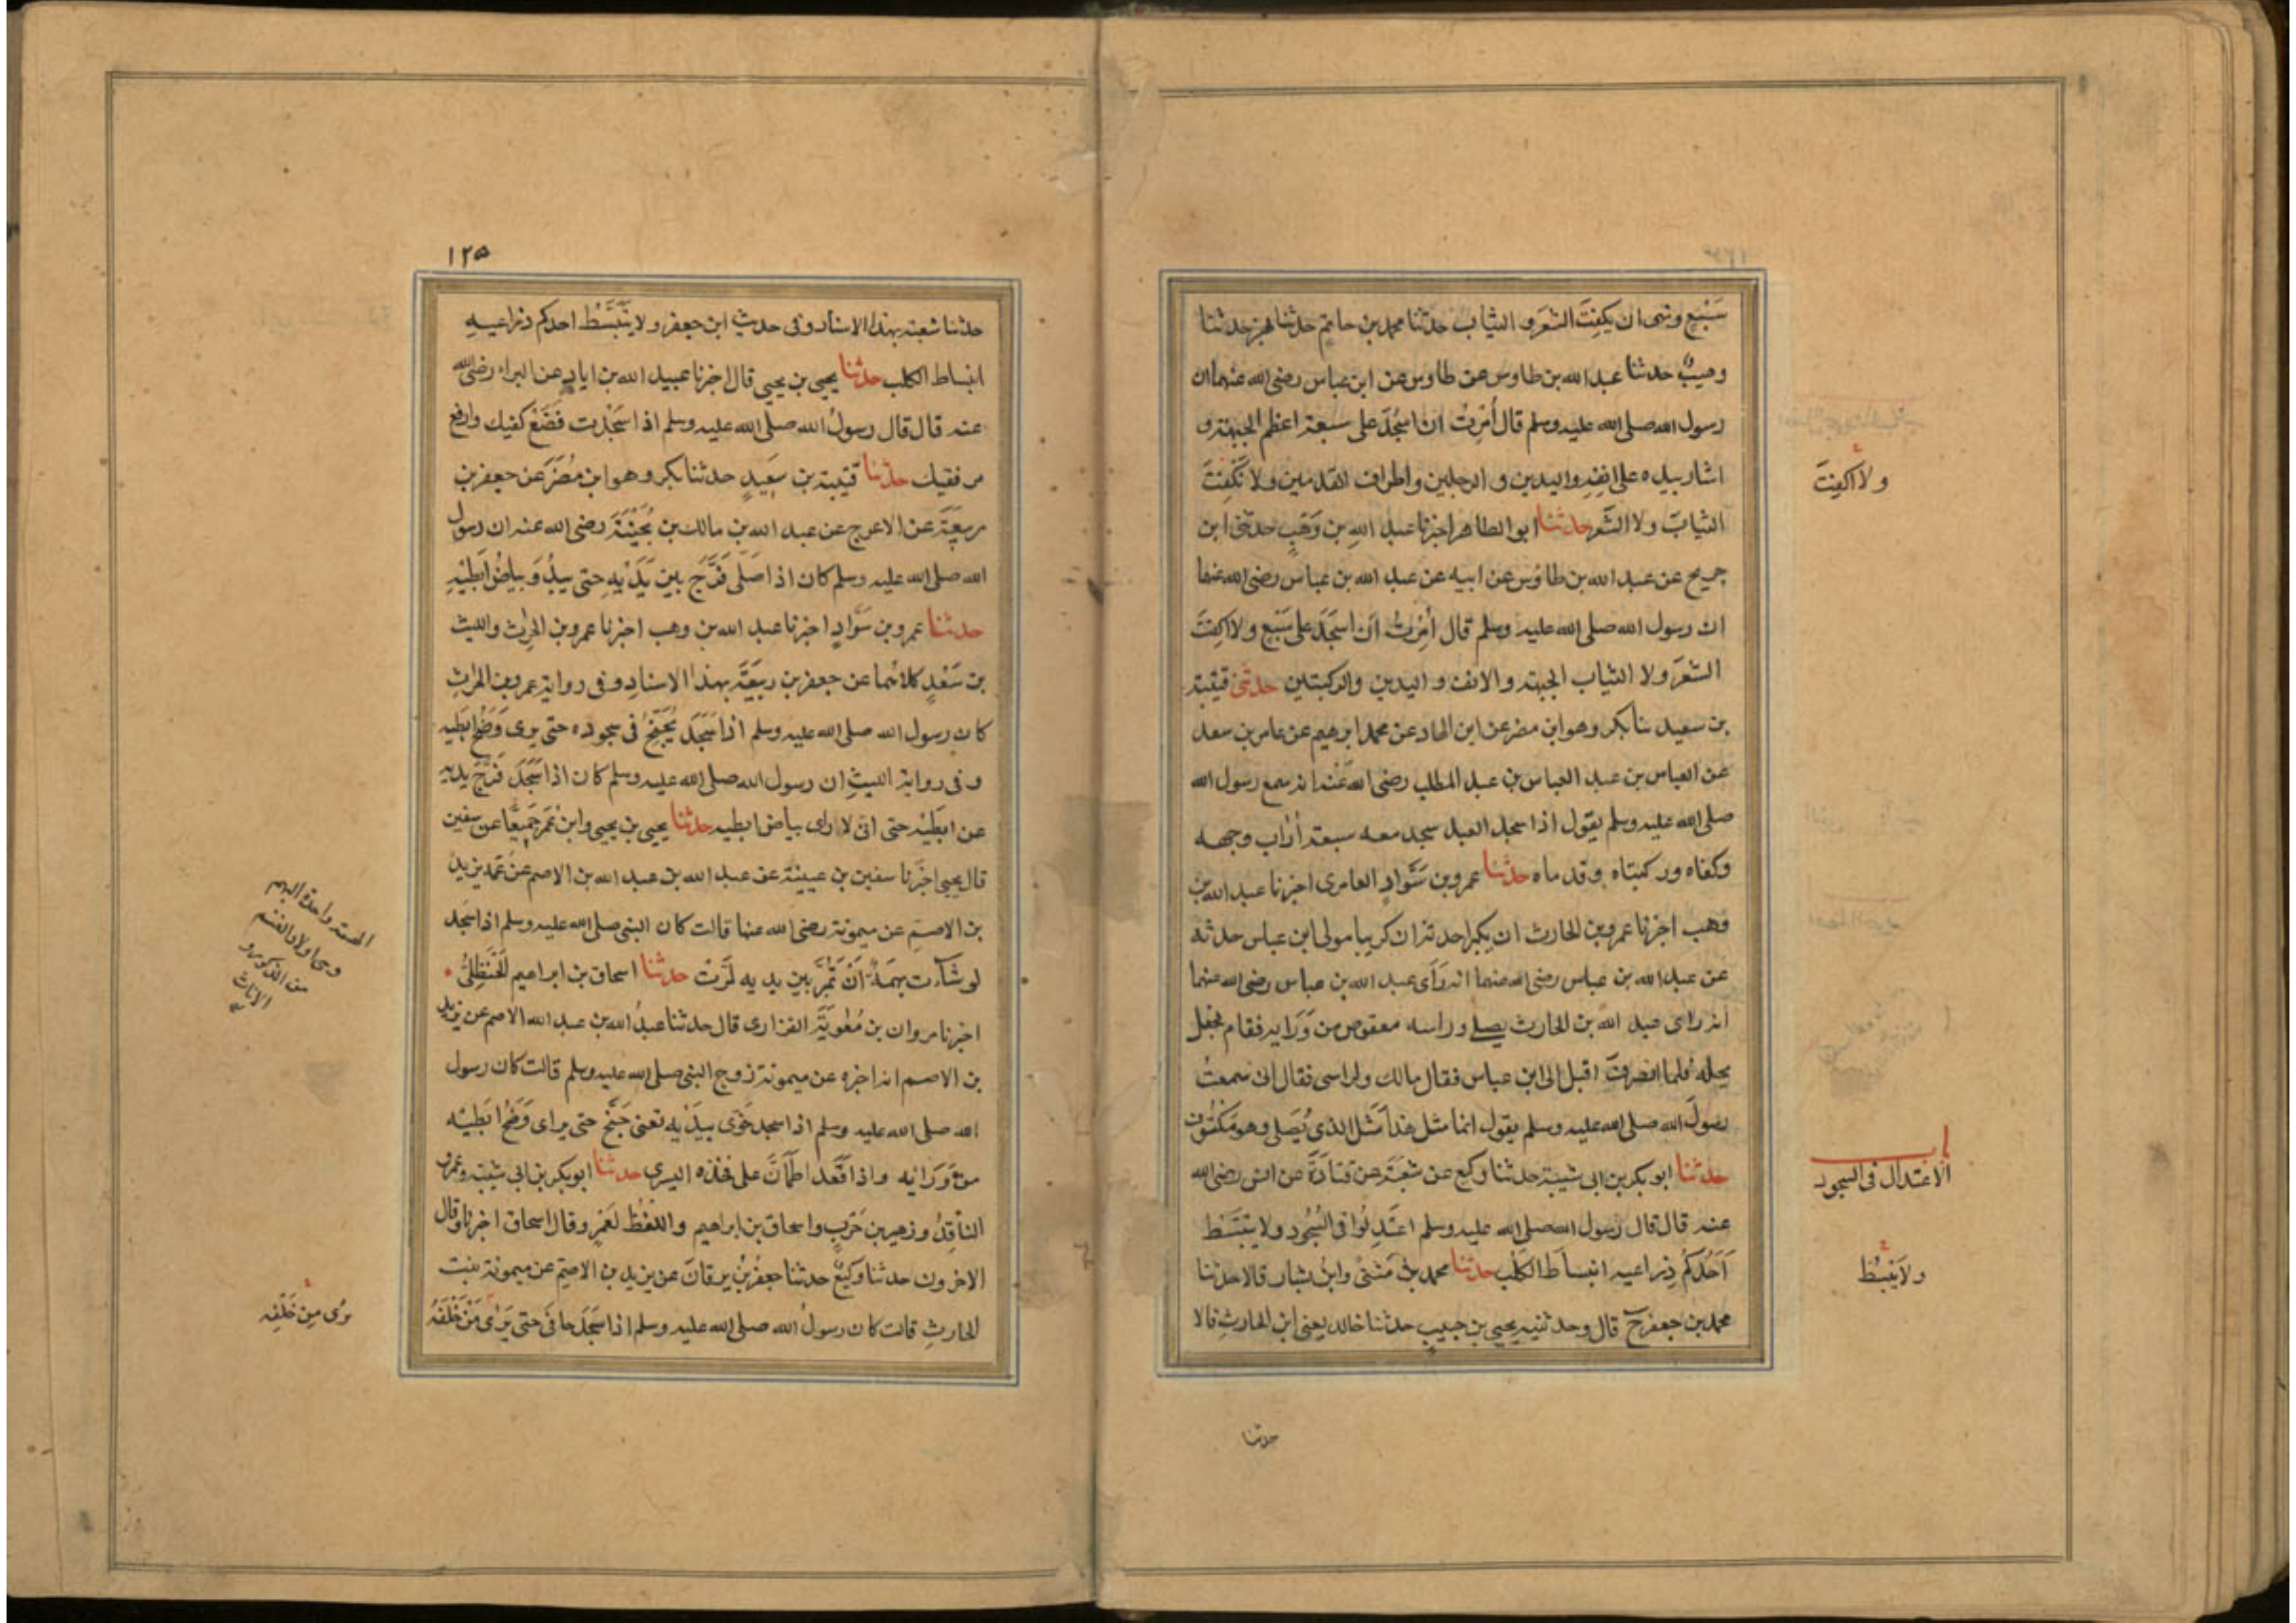 سَبْعٍ ونهى ان يكفِتَ الشعَرَ و الثياب حدثنا محمد بن حاتم حدثنا بهز حدثنا
وهيبٌ حدثنا عبد الله بن طاوس عن طاوس عن ابن عباس رضى الله عنهما ان
رسول الله صلى الله عليه وسلم قال أُمِرتُ ان اسجُدَ على سبعة اعظم الجبهة و
اشار بيده على انفِهِ واليدين و الرجلين واطراف القدمين ولا نَكْفِتَ
الثيابَ ولا الشَعر حدثنا ابو الطاهر اخبرنا عبد الله بن وَهَبٍ حدثنى ابن
جريح عن عبد الله بن طاوُس عن ابيه عن عبد الله بن عباس رضى الله عنهما
ان رسول الله صلى الله عليه وسلم قال أُمِرتُ اَن اسجَدَ على سَبْعٍ ولا اكفِتَ
الشعَرَ ولا الثياب الجبهة والانف و اليدين والركبتين حدثنى قتيبة
بن سعيد نا بكر وهو ابن مضر عن ابن الهاد عن محمد ابرهيم عن عامر بن سعد
عن العباس بن عبد العباس بن عبد المطلب رضى الله عَنْه انه سمع رسول الله
صلى الله عليه وسلم يقول اذا سجد العبد سجد معه سبعة أرَاب وجهه
وكفاه وركبتاه وقدماه حدثنا عمرو بن سَوَّادٍ العامرى اخبرنا عبد الله بن
وهب اخبرنا عمرو بن الحارث ان بكيرا حدثه ان كريبا مولى ابن عباس حدثه
عن عبد الله بن عباس رضى الله عنهما انه رَأى عبد الله بن عباس رضى الله عنهما
انه راى عبد الله بن الحارث يصلے وراسه معقوص من وَرَايه فقام فجعل
يحله فلما انصرفَ اقبل الى ابن عباس فقال مالك ولراسى فقال انى سمعتُ
رسولَ الله صلى الله عليه وسلم يقول انما مثل هذا مَثَل الذى يُصَلى وهو مَكتُوف
حدثنا ابو بكر بن ابى شيبة حدثنا وكيع عن شعبَةَ عن قتادَةَ عن انس رضى الله
عنه قال قال رسول الله صلى الله عليه وسلم اعتَدِلُوا فى السُجُود ولا يتبَسَّط
اَحَدُكُم ذِراعيه انبسَاطَ الكَلب حدثنا محمد بن مَثنىٰ وابنُ بشار قالا حدثنا
محمد بن جعفر ح قال وحدثنيه يحيى بن حبيبٍ حدثنا خالد يعنى ابن الحارثِ قالا
حدثنا
ولا اَكفِتَ
باب
الاعتدال فى السجود
ولا يَبْسُط
١٢٥
حدثنا شعبة بهذا الاسناد وفى حديث ابن جعفر ولا يَتَبَسَّطْ احدكم ذراعيهِ
انبساط الكلب حدثنا يحيى بن يحيى قال اخبرنا عبيد الله بن اياد عن البراء رضى الله
عنه قال قال رسولُ الله صلى الله عليه وسلم اذا سَجَدْت فَضَعْ كفيك وارفع
مرفقيك حدثنا قتيبة بن سَعِيدٍ حدثنا بكر وهو ابن مُضَرَ عن جعفر بن
ربيعَةَ عن الاعرج عن عبد الله بن مالك بن بُحَيْنَةَ رضى الله عنه ان رسول
الله صلى الله عليه وسلم كان اذا صَلّى فَرَّجَ بين يَدَيْهِ حتى يبدُوَ بياضُ ابطَيْهِ
حدثنا عمرو بن سَوَّادٍ اخبرنا عبد الله بن وهب اخبرنا عمرو بن الحرِث والليث
بن سَعْدٍ كلاهما عن جعفر بن ربيعَةَ بهذا الاسنادِ وفى رواية عمرو بن الحرثِ
كان رسول الله صلى الله عليه وسلم اذا سَجَدَ يُجَنِّحُ فى سجوده حتى يرى وَضَحُ ابطَيه
وفى رواية الليثِ ان رسول الله صلى الله عليه وسلم كان اذا سَجَدَ فَرَّجَ يديه
عن ابطَيْه حتى انى لارى بياض ابطيه حدثنا يحيى بن يحيى وابن عُمَر جَمِيعًا عن سفين
قال يحيى اخبَرنا سفين بن عيينة عن عبد الله بن عبد الله بن الاصم عن عَمه يزيد
بن الاصمِ عن ميمونة رضى الله عنها قالت كان النبى صلى الله عليه وسلم اذا سجد
لو شآءت بهمَةٌ اَنْ تَمُرَّ بين يديه لمَرَّتْ حدثنا اسحاق بن ابراهيم الحَنظِلىُّ
اخبرنا مروان بن مُعٰويَةَ الفزارى قال حدثنا عبدُ الله بن عبد الله الاصم عن يزيد
بن الاصم انه اخبره عن ميمونة زوج النبى صلى الله عليه وسلم قالت كان رسول
الله صلى الله عليه وسلم اذا سجد خَوّى بيدَيْه تعنى جَنَّحَ حتى يرى وَضَحُ ابطَيْه
من وَرَايه واذا قعَد اطمَأنَّ على فخذه اليسرى حدثنا ابو بكر بن ابى شيبة وعمرو
الناقِدُ وزهير بن حَرْبٍ واسحاق بن ابراهيم واللفظ لعَمرٍو قال اسحاق اخبرنا وقال
الاخرون حدثنا وكيعٌ حدثنا جعفرُ بنُ برقانَ عن يزيد بن الاصِمّ عن ميمونة بنت
الحارثِ قالت كان رسولُ الله صلى الله عليه وسلم اذا سَجَدَ جافى حتى يَرٰى مَنْ خَلْفَهُ
واحدة البهم
وهى اولاد الغنم
من الذكور و
الاناث
يرُى مِن خَلْفِه